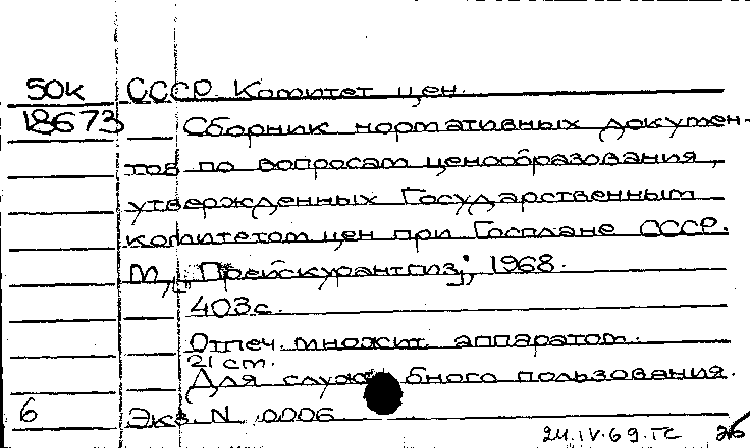 50к СССР. Комитет цен.
18673 Сборник нормативных докумен-
тов по вопросам ценообразования,
утвержденных Государственным
комитетом цен при Госплане СССР.
М., "Прейскурантгиз", 1968.
403с.
Отпеч. множит. аппаратом.
21 см.
Для служебного пользования.
6 Экз. N 0006
24.IV.69.ГС 26